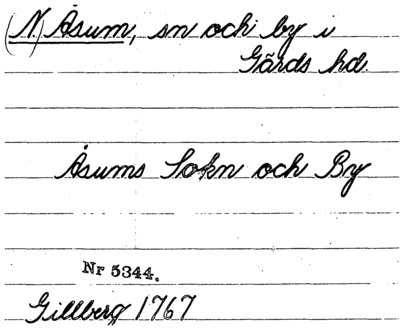 (N.) Åsum, sn och by i
Gärds hd.
Åsums Sokn och By
Nr 5344.
Gillberg 1767